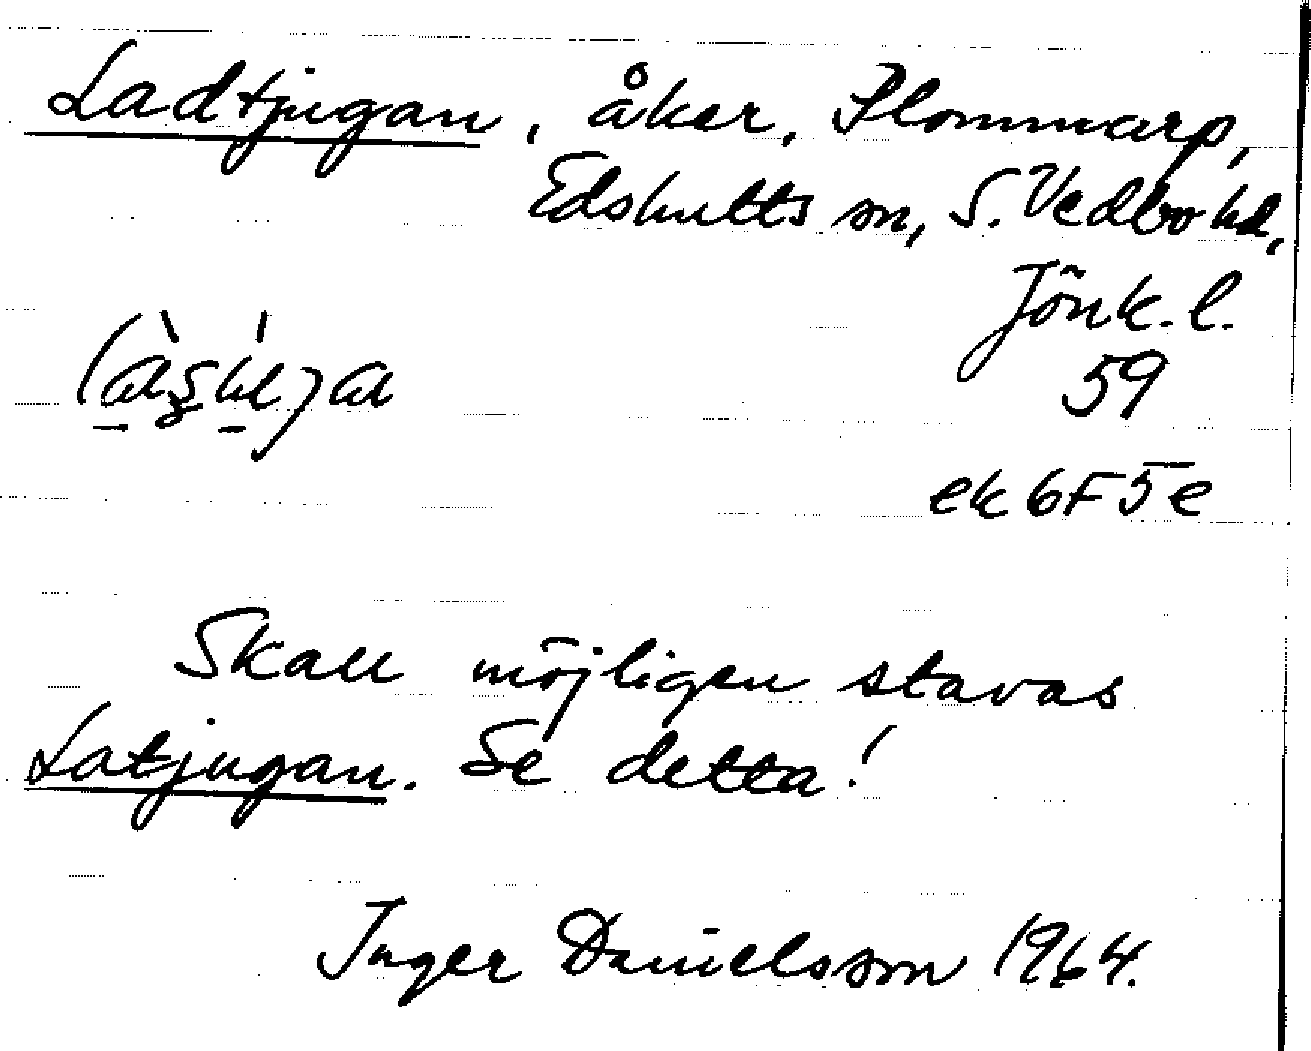 Ladtjugan, åker, Plommarp,
Edshults sn, S. Vedbo hd,
Jönk. l.
59
ek 6F 5e
Skall möjligen stavas
Latjugan. Se detta!
Inger Danielsson 1964.